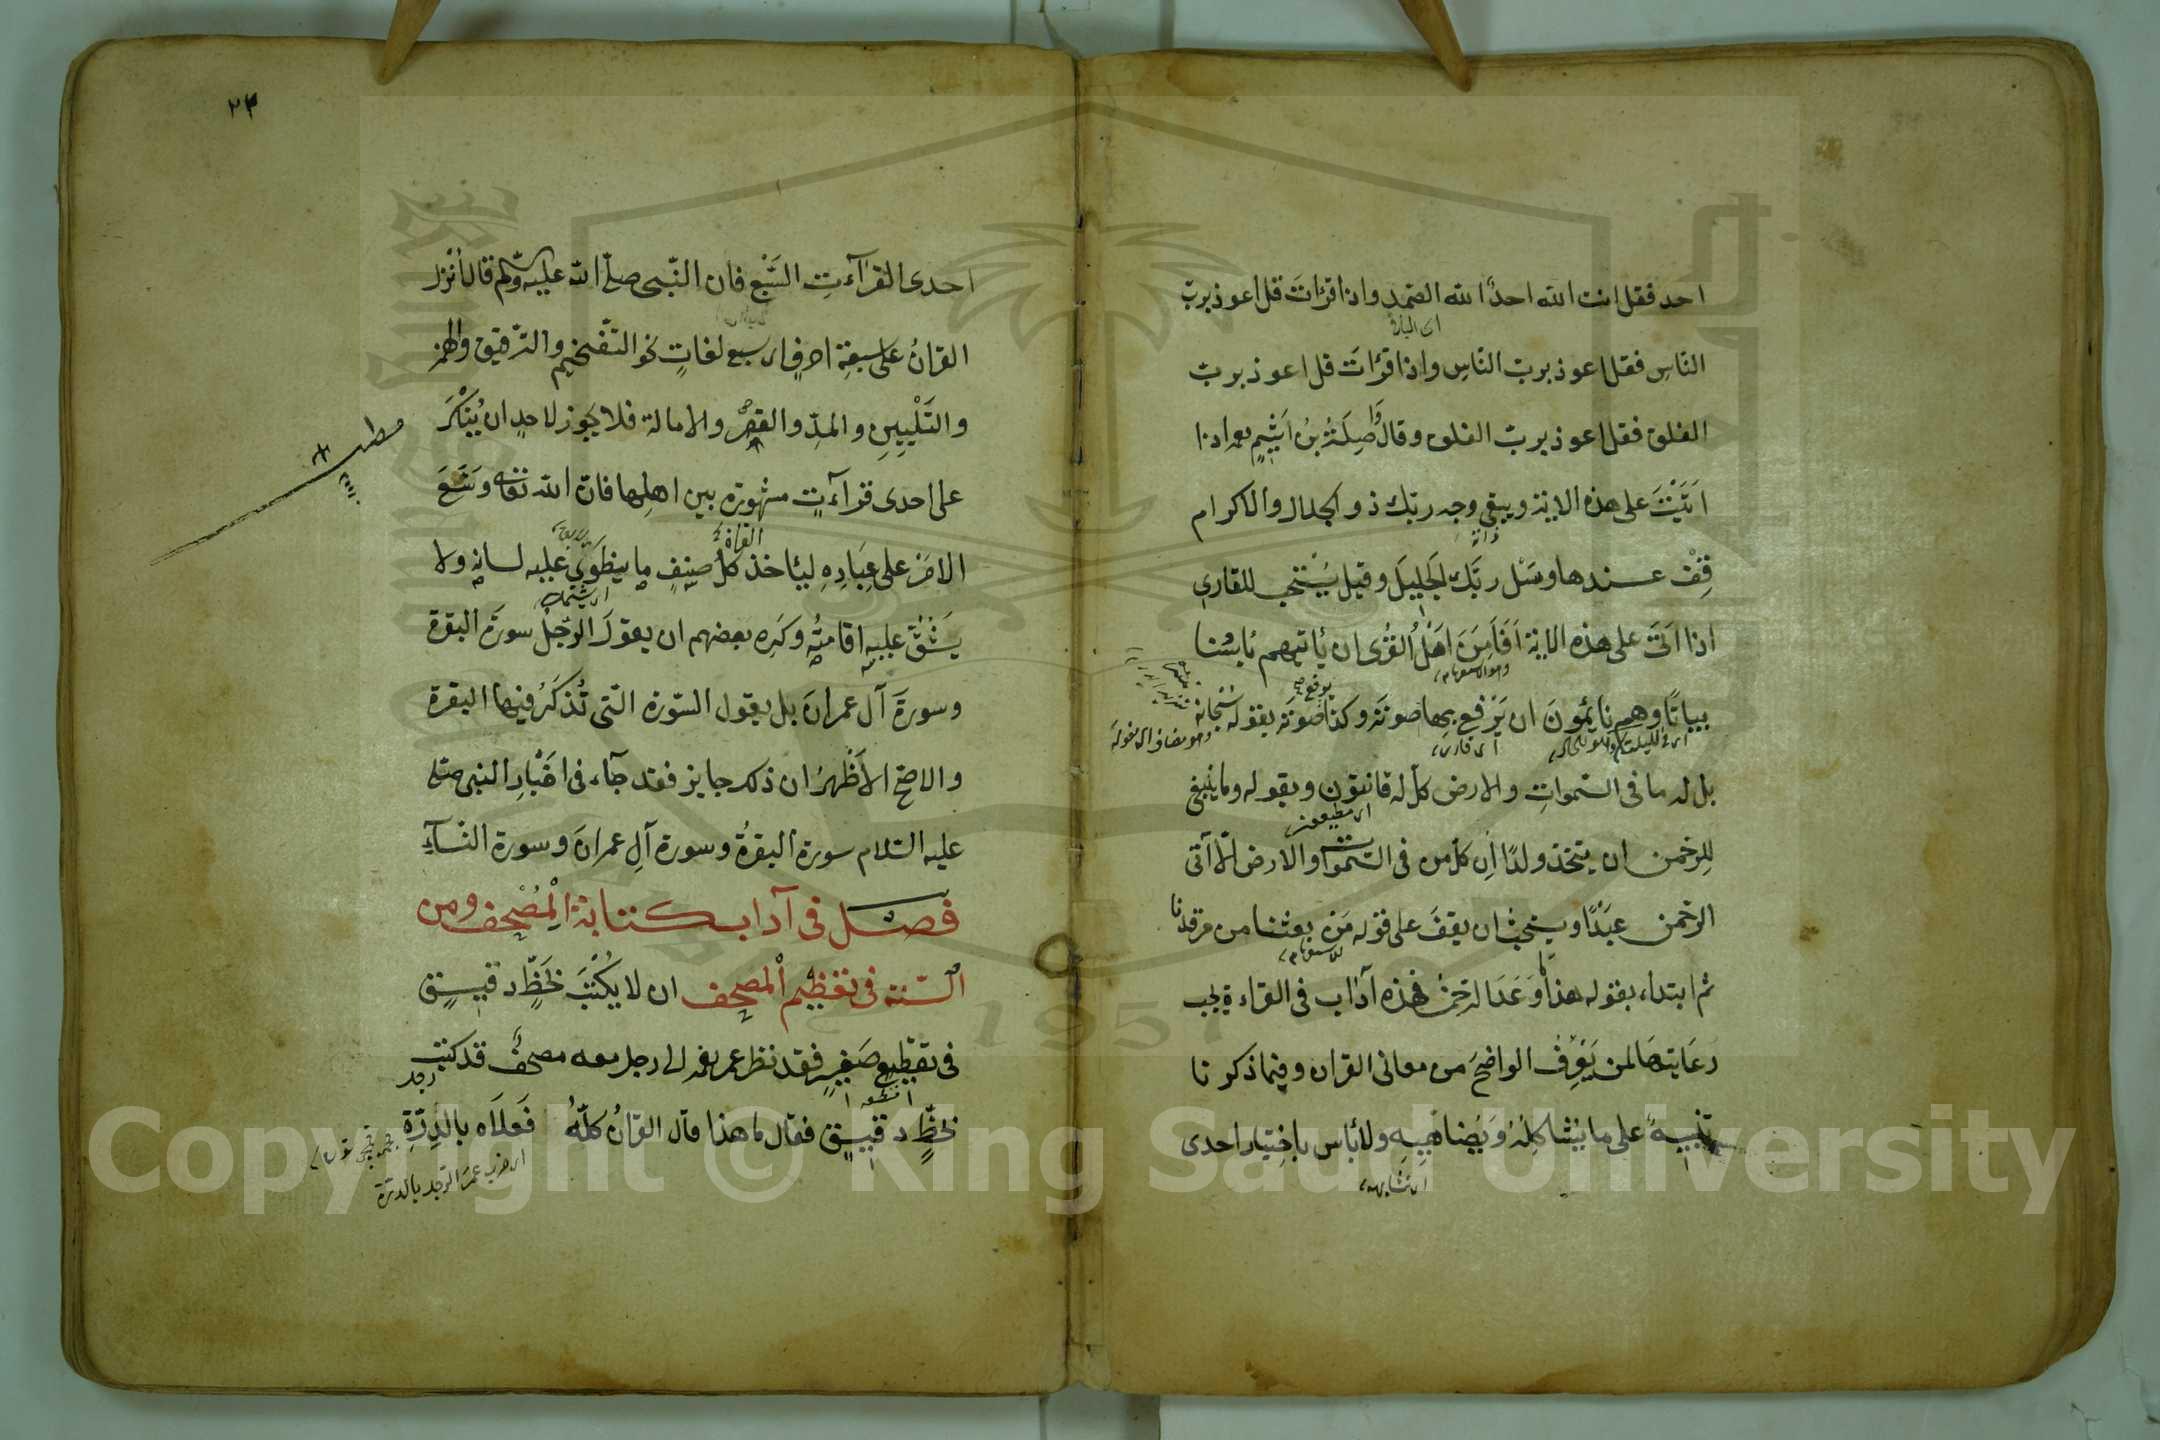 احد فقل انت الله احدٌ الله الصّمد واذا قرأتَ قل اعوذ بربّ
اى البارئ
النّاس فقل اعوذ بربّ النّاس واذا قرأتَ قل اعوذ بربّ
الفلق فقل اعوذ بربّ الفلق وقال صِلَةُ بنُ اَشْيَمٍ اذا
اَتَيْتَ على هذه الاية ويبقى وجه ربّك ذو الجلال والاكرام
قِفْ عندها وسَلْ ربَّك الجَليلَ وقيل يُسْتحب للقارى
اذا اَتَى على هذه الاية اَفَاَمِنَ اَهْلُ القُرى ان يأتيهم بأسنا
بياتًا وهم نائمُونَ ان يَرْفع بها صوتَه وكذا صوتَه بقوله سُبْحانه
بل له ما فى السّموات والارض كلّ له قانتون وبقوله وما ينبغى
اى مطيعون
لِلرحمن ان يتخذ ولدًا اِن كلّ من فى السّموات والارض الّا آتى
الرحمن عبدًا ويستحبّ ان يقفَ على قوله مَنْ بعثنا من مرقدنا
ثم ابتداء بقوله هذا ما وَعَدَ الرّحمنُ فهذه آداب فى القراءة يجب
رعَايتهَا لمن يَعْرِفُ الواضحَ من معانى القران وفيما ذكرنا
تنبيهٌ على ما يُشاكِلُهُ وَيُضاهِيهِ ولا بأس باختيار احدى
اى يشابهه
٢٣
احدى القراءتِ السَّبْع فان النّبى صلّى الله عليه وسلم قال اُنزل
القرانُ على سبعة احرفٍ اى سبع لغاتٍ نحو التّفخيم والتّرقيق والهمز
والتَلْيِينِ والمدّ والقصر والامالة فلا يجوز لاحدٍ ان يُنْكَرَ
مطلب
على احدى قراءتٍ مشهورة بين اهلها فانّ الله تعالى وَسَّعَ
الامرَ على عِبَادِهِ ليأخذ كلُّ صِنفٍ ما ينطوى عليه لسانه ولا
يَشُقّ عليه اقامتُه وكَرِه بعضهم ان يقولَ الرّجلُ سورةَ البقرة
وسورةَ آل عمرانَ بل يقول السّورة التى تُذكَرُ فيها البقرة
والاصح الاَظْهرُ ان ذلك جايز فقد جآء فى اخْبَارِ النبى صلّى
عليه السّلام سورة البقرةُ وسورة آلِ عمرانَ وسورة النّسآءِ
فصل فى آداب كتابة المُصْحف ومن
السّنة فى تعظيم المصحف ان لا يُكْتَبَ بخَطٍّ دقيقٍ
فى تقطيع صَغيرٍ فقد نظر عمر الى رجل معه مصحفٌ قد كتب
بخطٍّ دقيقٍ فقال ما هذا قال القرانُ كلّهُ فَعَلَاه بالدِرّةِ
اى ضرب عمر الرّجل بالدرّة
Copyright © King Saud University
1957